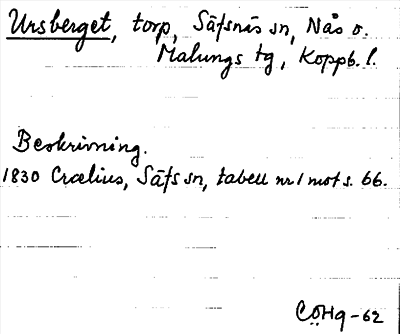 Ursberget, torp, Säfsnäs sn, Nås o.
Malungs tg, Koppb. l.
Beskrivning.
1830 Crælius, Säfs sn, tabell nr 1 mot s. 66.
CÖHg-62